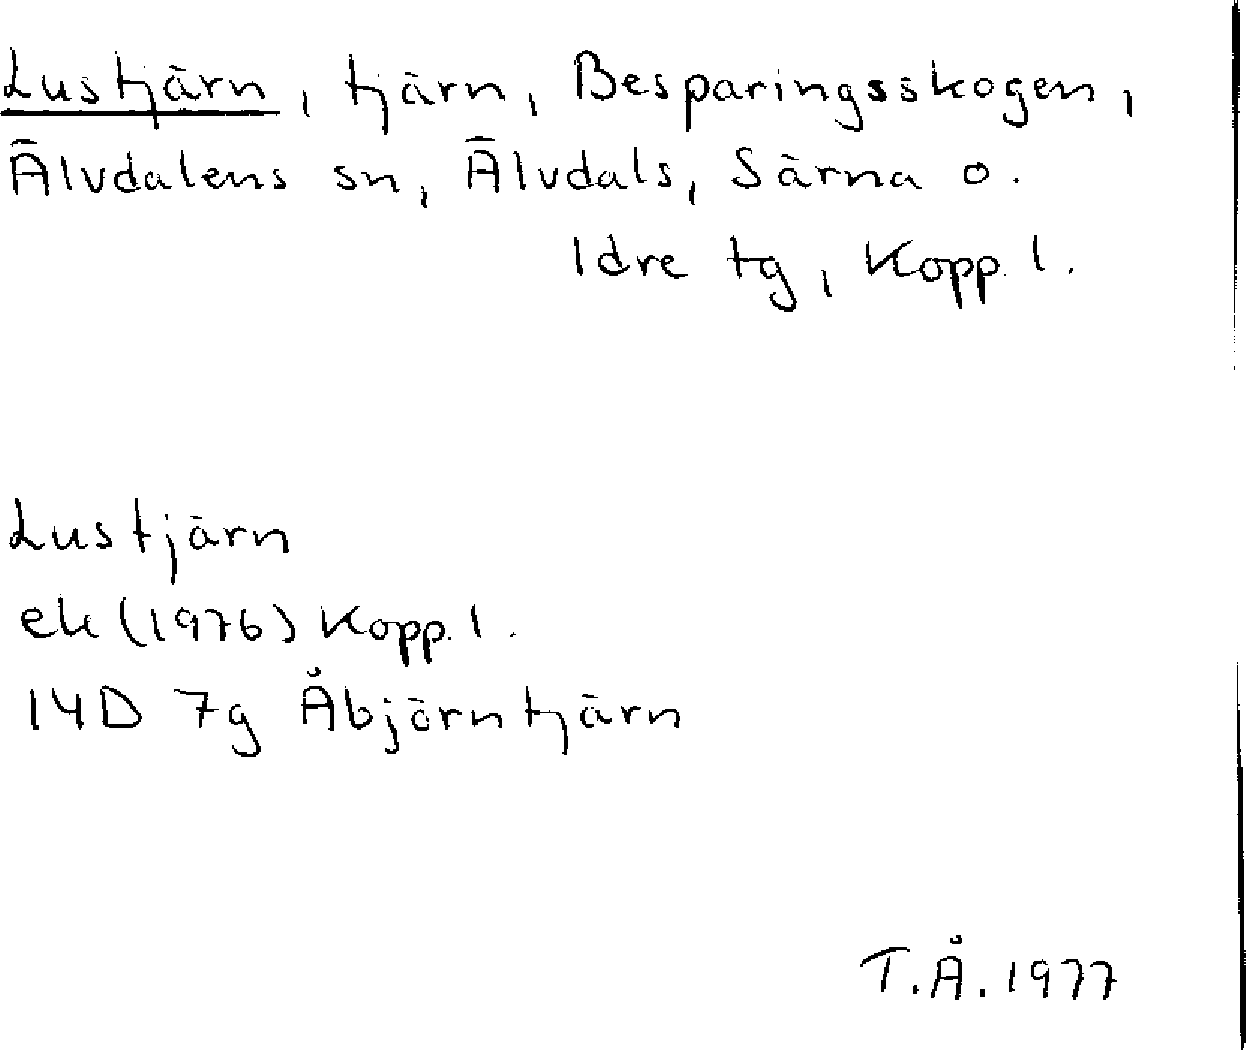 Lustjärn, tjärn, Besparingsskogen,
Älvdalens sn, Älvdals, Särna o.
Idre tg, Kopp. l.
Lustjärn
ek (1976) Kopp. l.
14D 7g Åbjörntjärn
T.Å. 1977